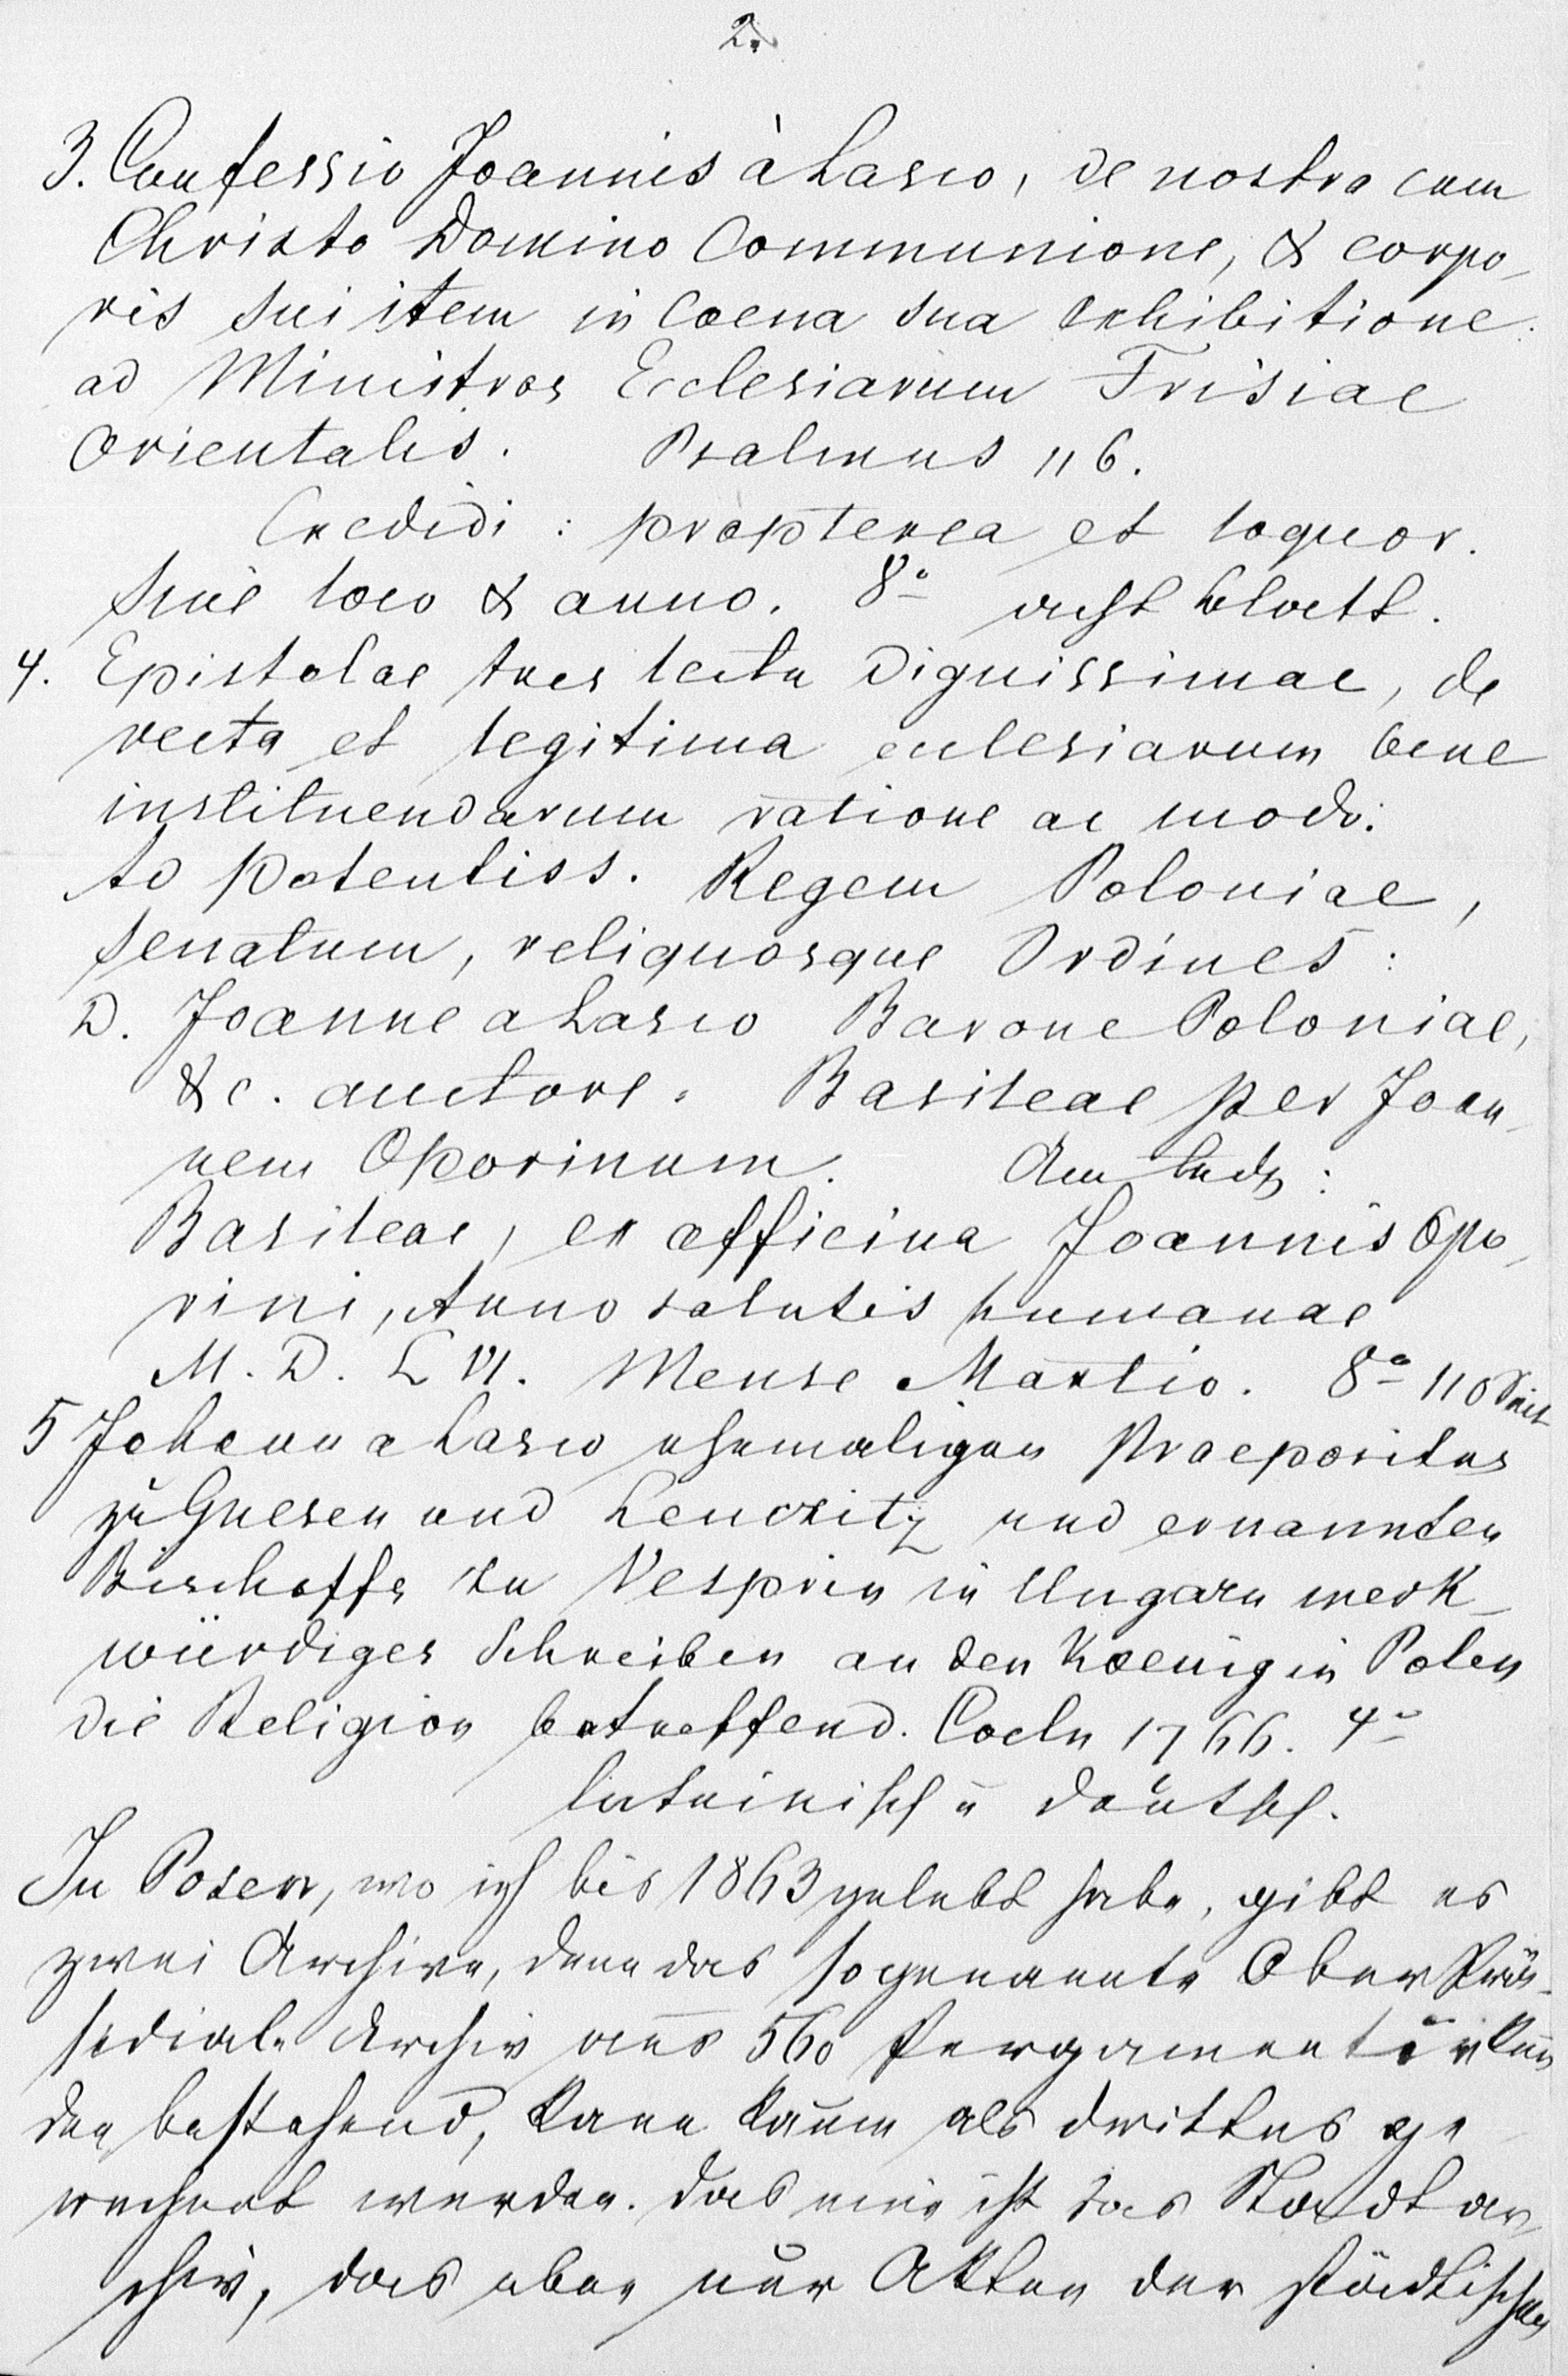 2.
3. Confessio Joannis à Lasco, de nostra cum
Christo Domino Communione, & corpo-
ris sui item in Coena sua exhibitione.
ad Ministros Ecclesiarum Frisiae
Orientalis. Psalmus 116.
Credidi: propterea et loquor.
sine loco & anno. 8° acht Blatt.
4. Epistolae tres lectu dignissimae, de
recta et legitima ecclesiarum bene
instituendarum ratione ac modo:
Ad Potentiss. Regem Poloniae,
Senatum, reliquosque Ordines:
D. Joanne a Lasco Barone Poloniae,
&c. auctore. Basileae per Joan-
nem Oporinum. Am Ende:
Basileae, ex officina Joannis Opo-
rini, Anno salutis humanae
M. D. LVI. Mense Martio. 8° 110 Seit
5 Johann a Lasco ehemaligen Praepositus
zu Gnesen und Lenczitz und ernannten
Bischoffs zu Vesprin in Ungarn merk-
würdiges Schreiben an den Koenig in Polen
die Religion betreffend. Coeln 1766. 4°
lateinisch u deutsch.
In Posen, wo ich bis 1863 gelebt habe, gibt es
zwei Archive, denn das sogenannte Ober Präs-
sidial-Archiv aus 560 Pergamenturkun
den bestehend, kann kaum als drittes ge-
rechnet werden. Das eine ist das Stadtar-
chiv, das aber nur Akten der städtischen